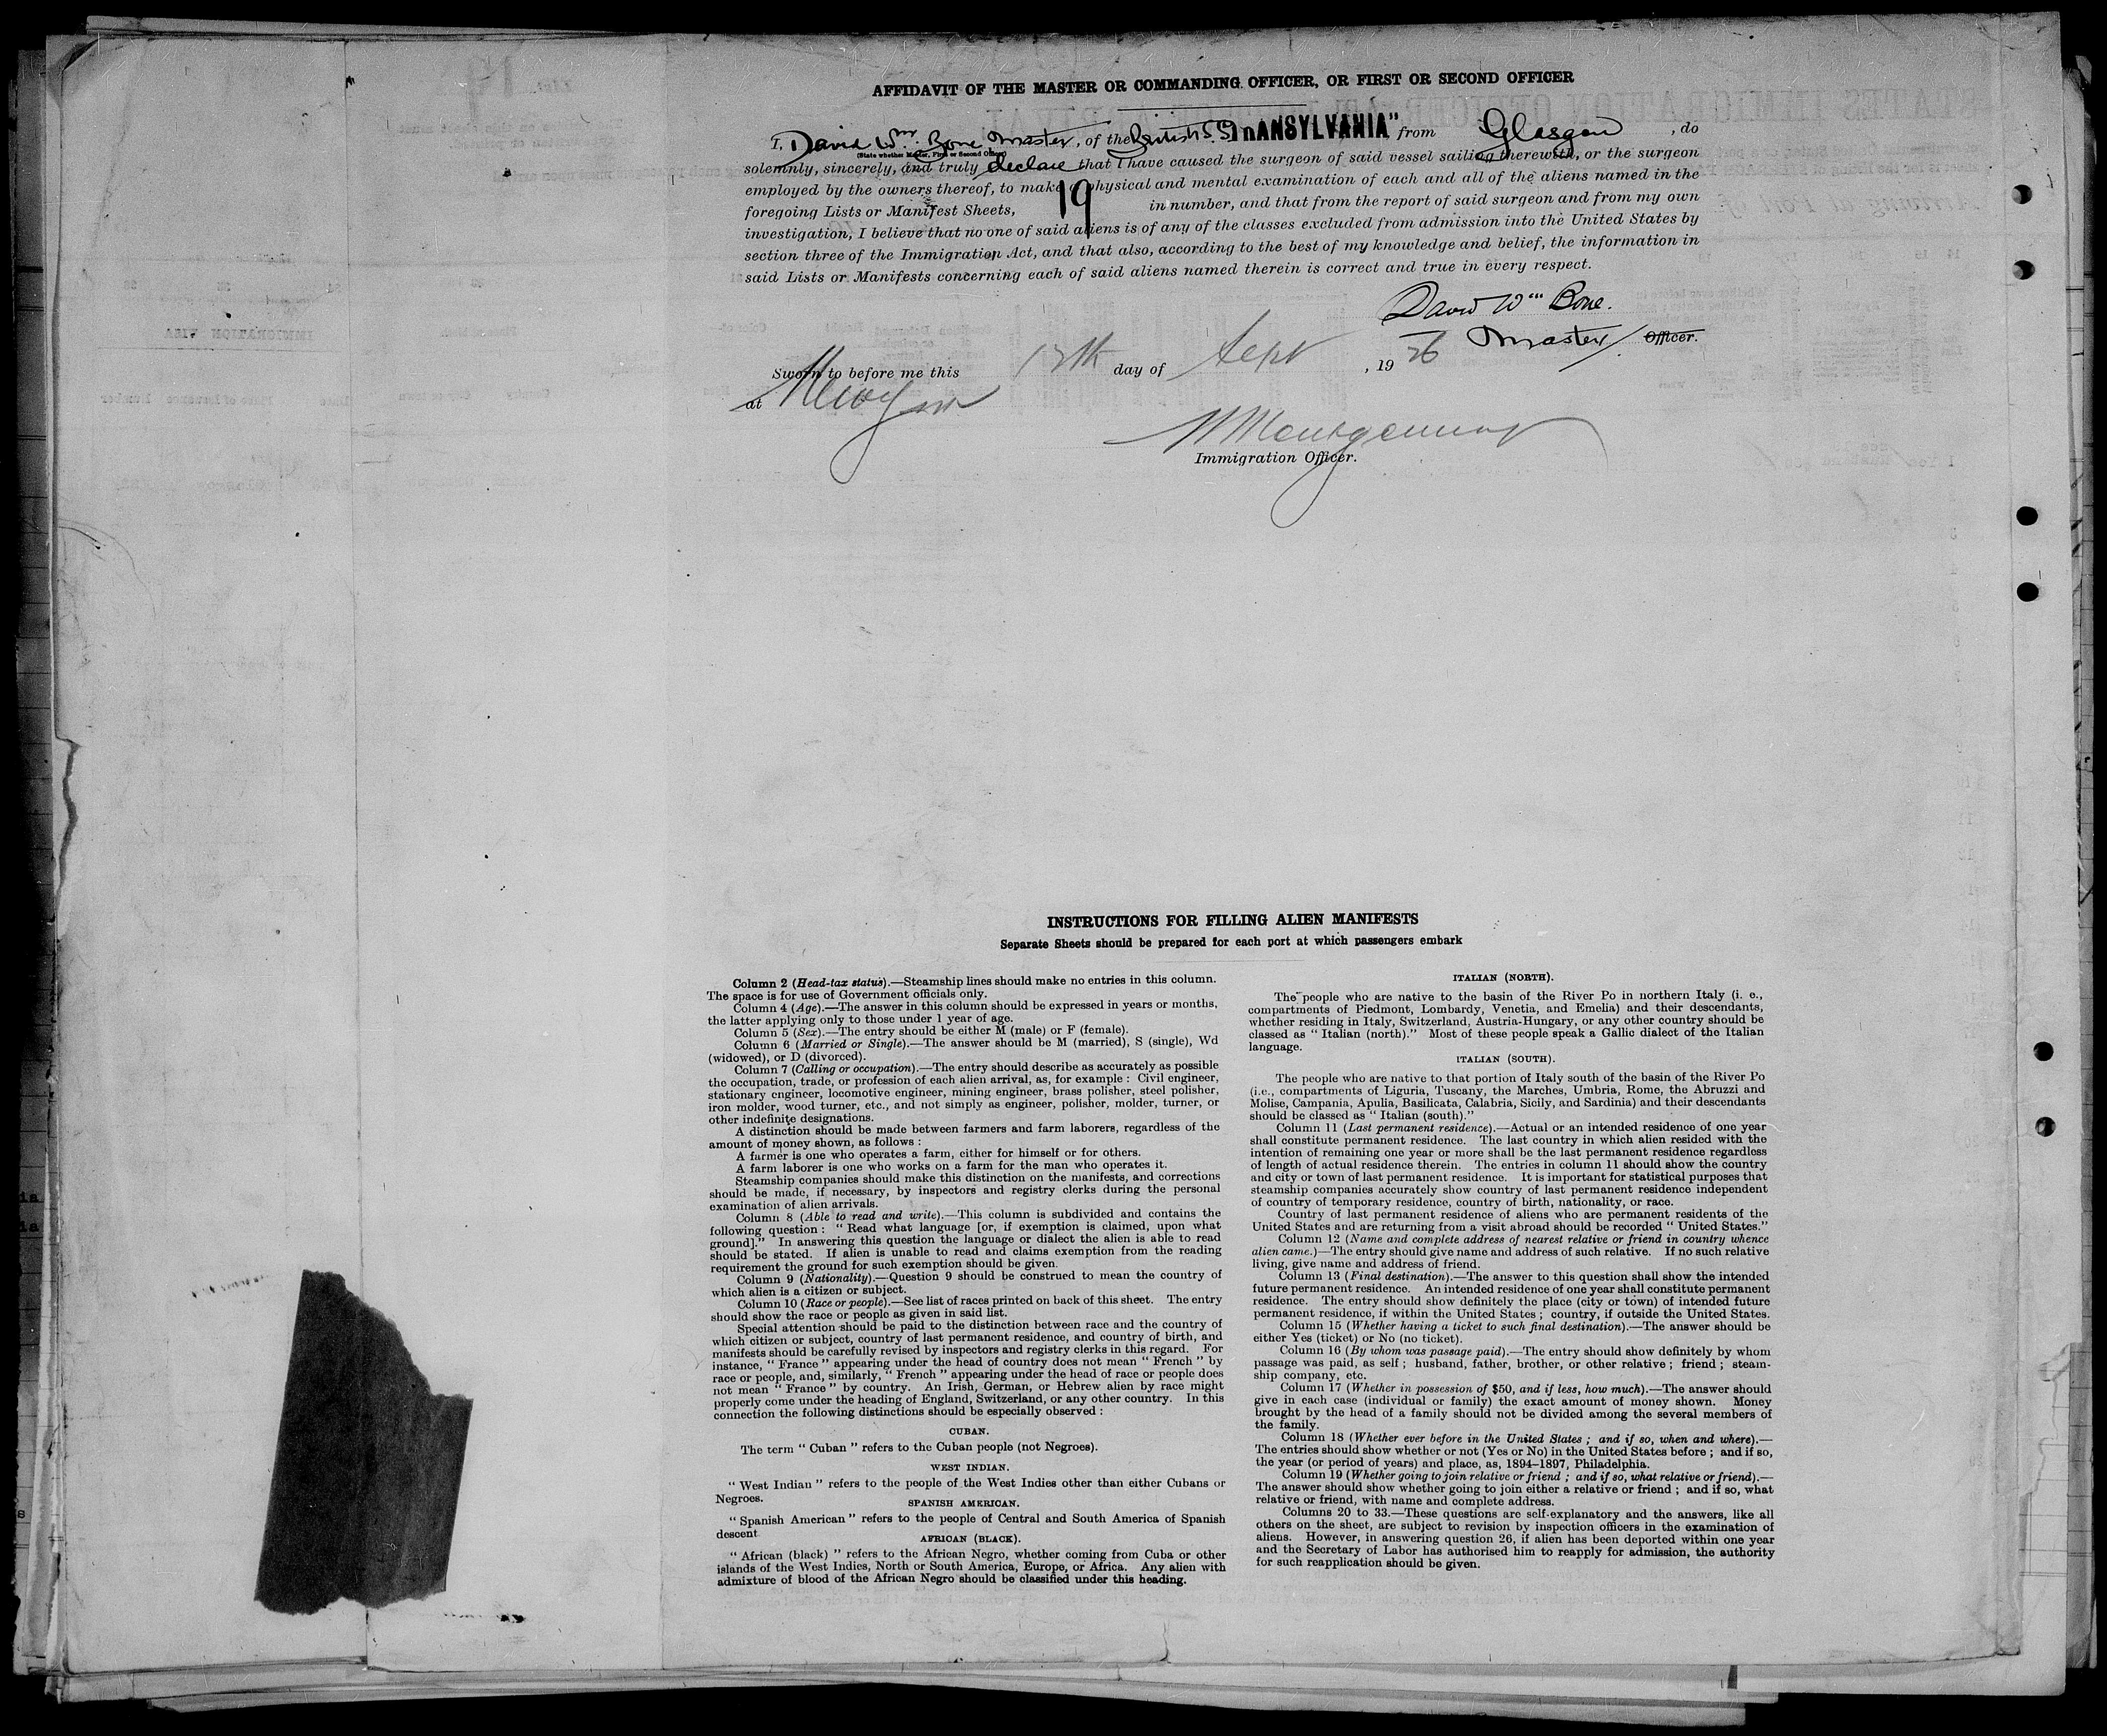 AFFIDAVIT OF THE MASTER OR COMMANDING OFFICER, OR FIRST OR SECOND OFFICER
I, David Wm. Bone Master, of the British S.S. "TRANSYLVANIA" from Glasgow, do
(State whether Master, First or Second Officer)
solemnly, sincerely, and truly declare that I have caused the surgeon of said vessel sailing therewith, or the surgeon
employed by the owners thereof, to make a physical and mental examination of each and all of the aliens named in the
foregoing Lists or Manifest Sheets, 19 in number, and that from the report of said surgeon and from my own
investigation, I believe that no one of said aliens is of any of the classes excluded from admission into the United States by
section three of the Immigration Act, and that also, according to the best of my knowledge and belief, the information in
said Lists or Manifests concerning each of said aliens named therein is correct and true in every respect.
David Wm Bone.
Master Officer.
Sworn to before me this day of Sept, 1926
at
Immigration Officer.
INSTRUCTIONS FOR FILLING ALIEN MANIFESTS
Separate Sheets should be prepared for each port at which passengers embark
Column 2 (Head-tax status).—Steamship lines should make no entries in this column.
The space is for use of Government officials only.
Column 4 (Age).—The answer in this column should be expressed in years or months,
the latter applying only to those under 1 year of age.
Column 5 (Sex).—The entry should be either M (male) or F (female).
Column 6 (Married or Single).—The answer should be M (married), S (single), Wd
(widowed), or D (divorced).
Column 7 (Calling or occupation).—The entry should describe as accurately as possible
the occupation, trade, or profession of each alien arrival, as, for example : Civil engineer,
stationary engineer, locomotive engineer, mining engineer, brass polisher, steel polisher,
iron molder, wood turner, etc., and not simply as engineer, polisher, molder, turner, or
other indefinite designations.
A distinction should be made between farmers and farm laborers, regardless of the
amount of money shown, as follows :
A farmer is one who operates a farm, either for himself or for others.
A farm laborer is one who works on a farm for the man who operates it.
Steamship companies should make this distinction on the manifests, and corrections
should be made, if necessary, by inspectors and registry clerks during the personal
examination of alien arrivals.
Column 8 (Able to read and write).—This column is subdivided and contains the
following question : " Read what language [or, if exemption is claimed, upon what
ground]." In answering this question the language or dialect the alien is able to read
should be stated. If alien is unable to read and claims exemption from the reading
requirement the ground for such exemption should be given.
Column 9 (Nationality).—Question 9 should be construed to mean the country of
which alien is a citizen or subject.
Column 10 (Race or people).—See list of races printed on back of this sheet. The entry
should show the race or people as given in said list.
Special attention should be paid to the distinction between race and the country of
which citizen or subject, country of last permanent residence, and country of birth, and
manifests should be carefully revised by inspectors and registry clerks in this regard. For
instance, " France " appearing under the head of country does not mean " French " by
race or people, and, similarly, " French " appearing under the head of race or people does
not mean " France " by country. An Irish, German, or Hebrew alien by race might
properly come under the heading of England, Switzerland, or any other country. In this
connection the following distinctions should be especially observed :
CUBAN.
The term " Cuban " refers to the Cuban people (not Negroes).
WEST INDIAN.
" West Indian " refers to the people of the West Indies other than either Cubans or
Negroes.
SPANISH AMERICAN.
" Spanish American " refers to the people of Central and South America of Spanish
descent
AFRICAN (BLACK).
" African (black) " refers to the African Negro, whether coming from Cuba or other
islands of the West Indies, North or South America, Europe, or Africa. Any alien with
admixture of blood of the African Negro should be classified under this heading.
ITALIAN (NORTH).
The people who are native to the basin of the River Po in northern Italy (i. e.,
compartments of Piedmont, Lombardy, Venetia, and Emelia) and their descendants,
whether residing in Italy, Switzerland, Austria-Hungary, or any other country should be
classed as " Italian (north)." Most of these people speak a Gallic dialect of the Italian
language.
ITALIAN (SOUTH).
The people who are native to that portion of Italy south of the basin of the River Po
(i.e., compartments of Liguria, Tuscany, the Marches, Umbria, Rome, the Abruzzi and
Molise, Campania, Apulia, Basilicata, Calabria, Sicily, and Sardinia) and their descendants
should be classed as " Italian (south)."
Column 11 (Last permanent residence).—Actual or an intended residence of one year
shall constitute permanent residence. The last country in which alien resided with the
intention of remaining one year or more shall be the last permanent residence regardless
of length of actual residence therein. The entries in column 11 should show the country
and city or town of last permanent residence. It is important for statistical purposes that
steamship companies accurately show country of last permanent residence independent
of country of temporary residence, country of birth, nationality, or race.
Country of last permanent residence of aliens who are permanent residents of the
United States and are returning from a visit abroad should be recorded " United States."
Column 12 (Name and complete address of nearest relative or friend in country whence
alien came.)—The entry should give name and address of such relative. If no such relative
living, give name and address of friend.
Column 13 (Final destination).—The answer to this question shall show the intended
future permanent residence. An intended residence of one year shall constitute permanent
residence. The entry should show definitely the place (city or town) of intended future
permanent residence, if within the United States ; country, if outside the United States.
Column 15 (Whether having a ticket to such final destination).—The answer should be
either Yes (ticket) or No (no ticket).
Column 16 (By whom was passage paid).—The entry should show definitely by whom
passage was paid, as self ; husband, father, brother, or other relative ; friend ; steam-
ship company, etc.
Column 17 (Whether in possession of $50, and if less, how much).—The answer should
give in each case (individual or family) the exact amount of money shown. Money
brought by the head of a family should not be divided among the several members of
the family.
Column 18 (Whether ever before in the United States ; and if so, when and where).—
The entries should show whether or not (Yes or No) in the United States before ; and if so,
the year (or period of years) and place, as, 1894–1897, Philadelphia.
Column 19 (Whether going to join relative or friend ; and if so, what relative or friend).—
The answer should show whether going to join either a relative or friend ; and if so, what
relative or friend, with name and complete address.
Columns 20 to 33.—These questions are self-explanatory and the answers, like all
others on the sheet, are subject to revision by inspection officers in the examination of
aliens. However, in answering question 26, if alien has been deported within one year
and the Secretary of Labor has authorised him to reapply for admission, the authority
for such reapplication should be given.